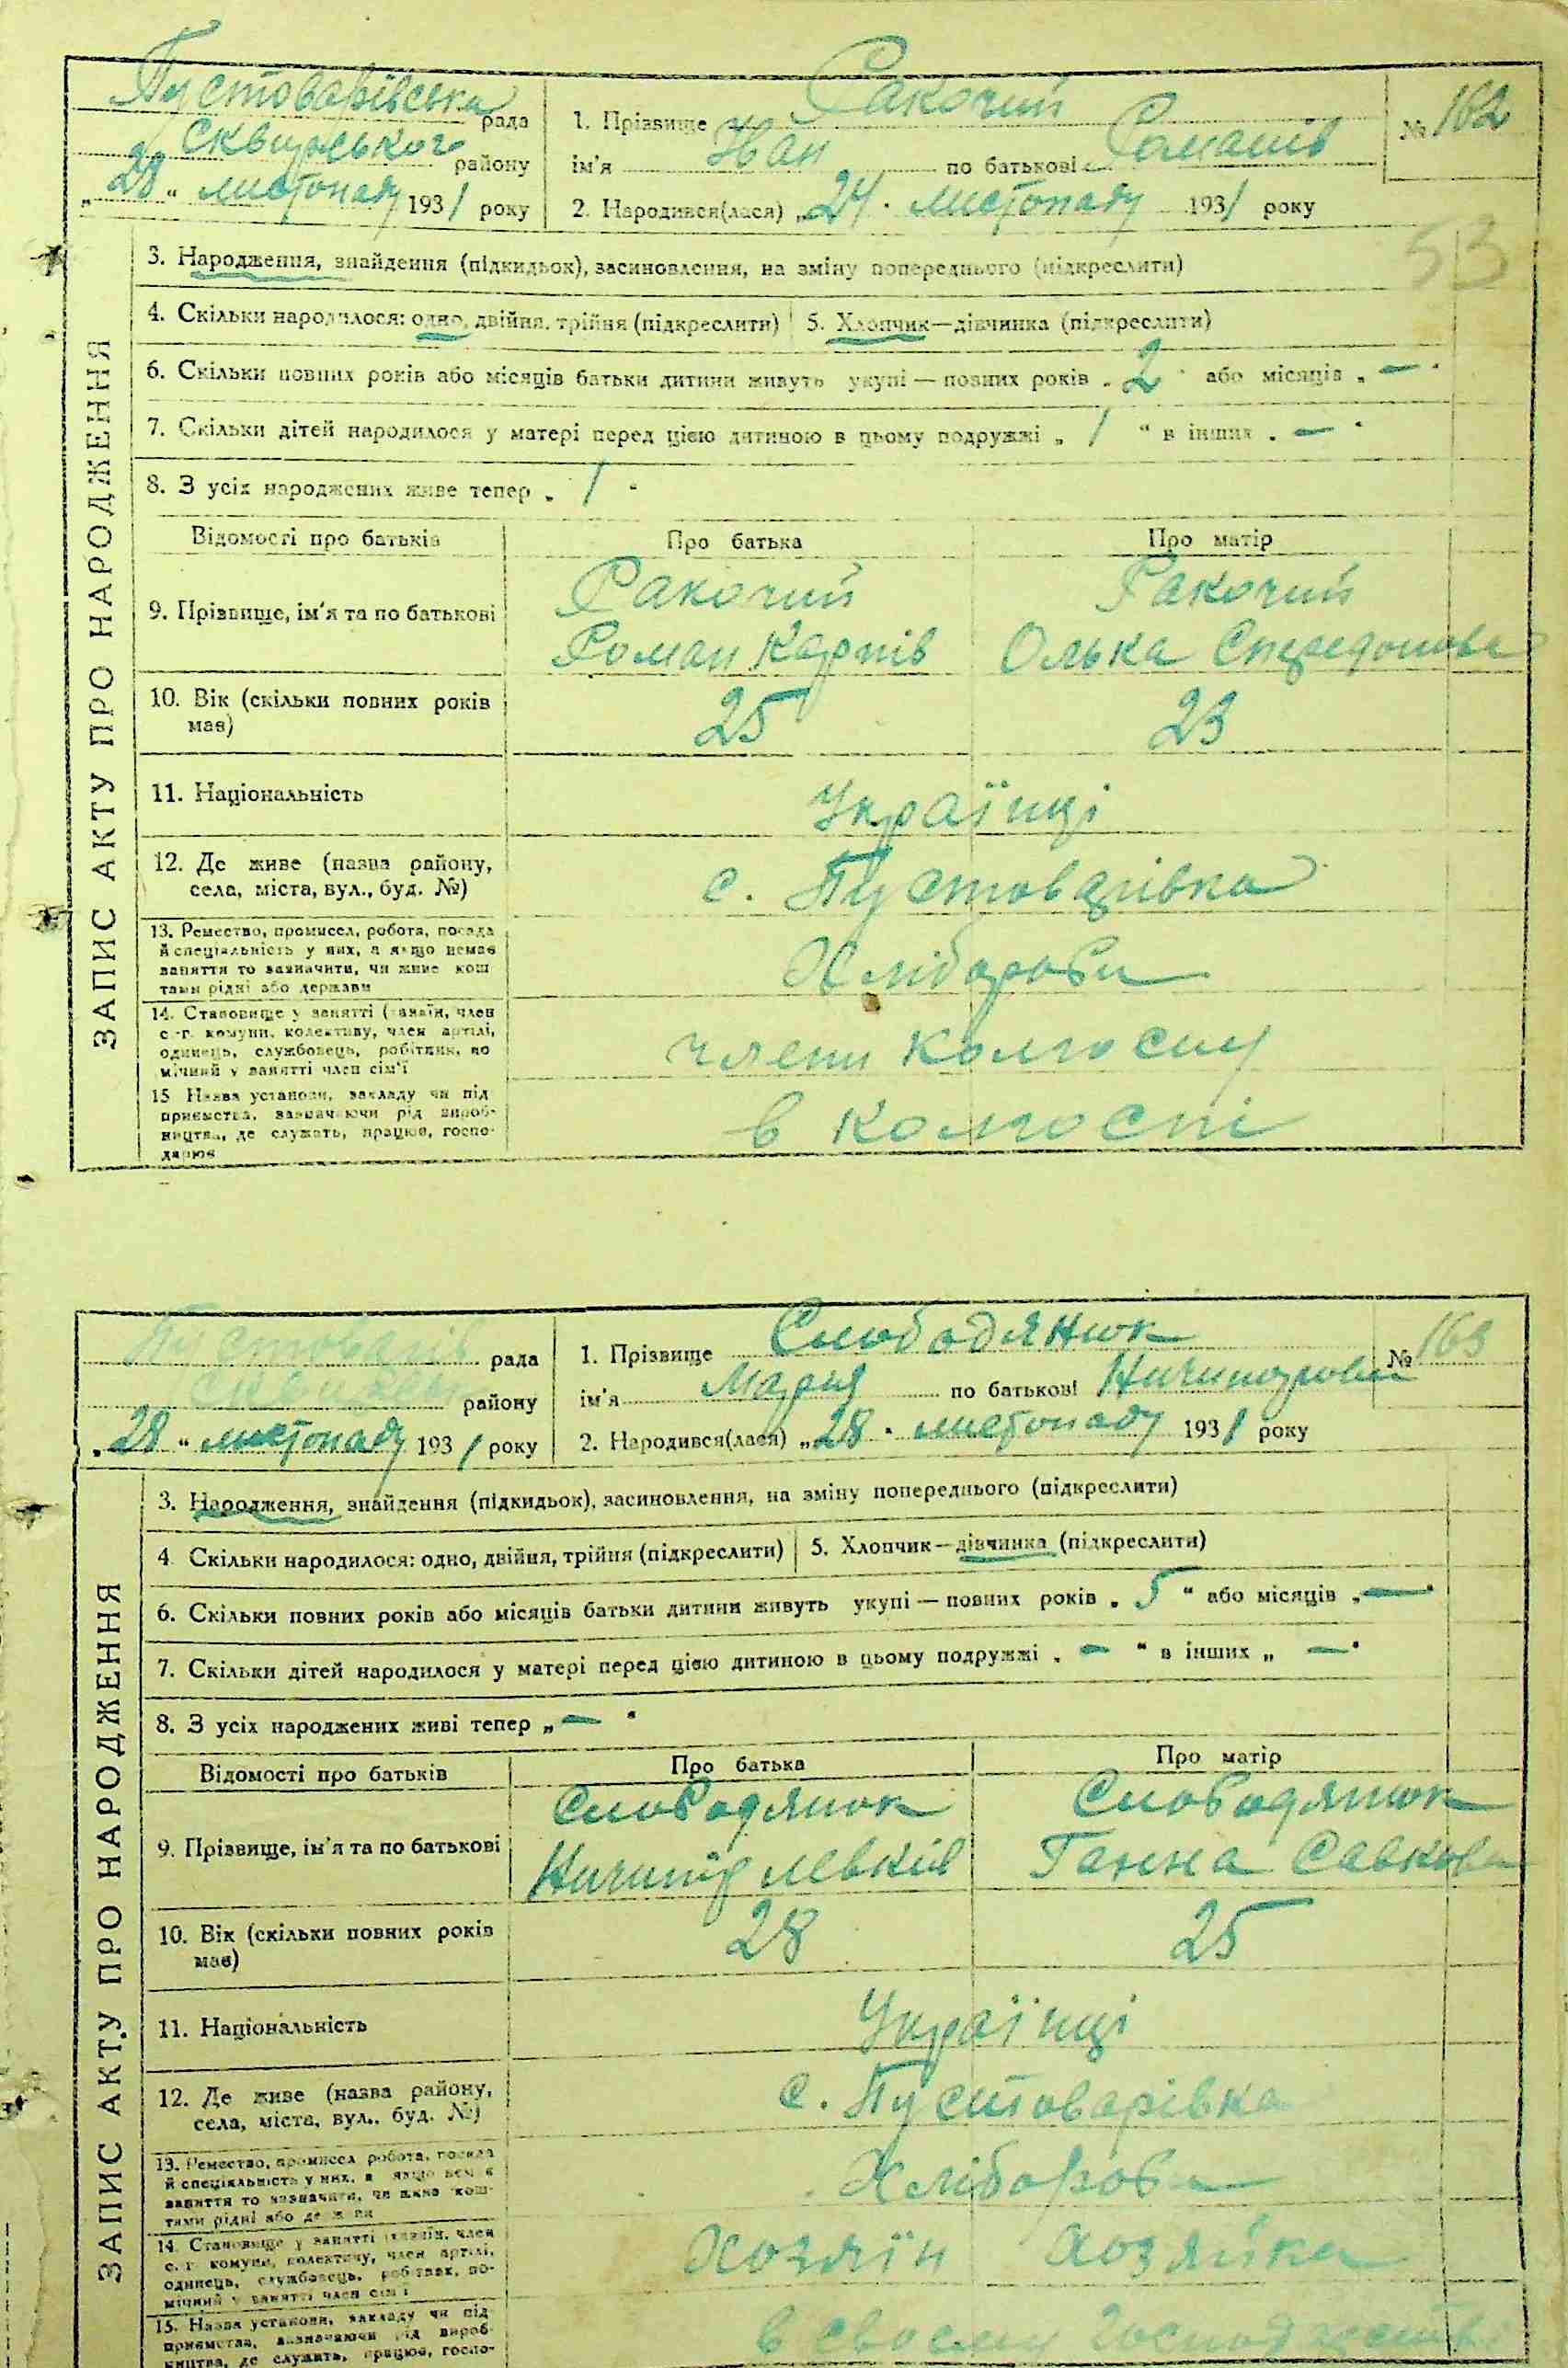 Пустоварівська рада
Сквирського району
„28“ листопаду 1931 року
1. Прізвище Ракочий
ім'я Іван по батькові Романів
№ 162
2. Народився(лася) „24“ листопаду 1931 року
53
3. Народження, знайдення (підкидьок), засиновлення, на зміну попереднього (підкреслити)
4. Скільки народилося: одно, двійня, трійня (підкреслити) 5. Хлопчик—дівчинка (підкреслити)
6. Скільки повних років або місяців батьки дитини живуть укупі — повних років „2“ або місяців „—“
7. Скільки дітей народилося у матері перед цією дитиною в цьому подружжі „1“ в інших „—“
8. З усіх народжених живе тепер „1“
Відомості про батьків Про батька Про матір
9. Прізвище, ім'я та по батькові
Ракочий Ракочий
Роман Карпів Олька Спередонова
10. Вік (скільки повних років
має)
25 23
11. Національність Українці
12. Де живе (назва району,
села, міста, вул., буд. №)
с. Пустоварівка
13. Ремество, промисел, робота, посада
й спеціяльність у них, а якщо немає
заняття то зазначити, чи живе кош
тами рідні або держави
Хлібороби
14. Становище у занятті (хазяїн, член
с.-г. комуни, колективу, член артілі,
одинець, службовець, робітник, по
мічний у занятті член сім'ї
члени колгоспу
15 Назва установи, закладу чи під
приємства, зазначаючи рід вироб-
ництва, де служать, працює, госпо-
дарює
в колгоспі
ЗАПИС АКТУ ПРО НАРОДЖЕННЯ
Пустоварів рада
Сквирськ району
„28“ листопаду 1931 року
1. Прізвище Слободянюк
ім'я Мария по батькові Ничипорови
№ 163
2. Народився(лася) „28“ листопаду 1931 року
3. Народження, знайдення (підкидьок), засиновлення, на зміну попереднього (підкреслити)
4 Скільки народилося: одно, двійня, трійня (підкреслити) 5. Хлопчик—дівчинка (підкреслити)
6. Скільки повних років або місяців батьки дитини живуть укупі — повних років „5“ або місяців „—“
7. Скільки дітей народилося у матері перед цією дитиною в цьому подружжі „—“ в інших „—“
8. З усіх народжених живі тепер „—“
Відомості про батьків Про батька Про матір
9. Прізвище, ім'я та по батькові
Слободянюк Слободянюк
Ничипір Левків Ганна Савкова
10. Вік (скільки повних років
має)
28 25
11. Національність Українці
12. Де живе (назва району,
села, міста, вул., буд. №)
с. Пустоварівка
13. Ремество, промисел робота, посада
й спеціяльність у них, а якщо нем є
заняття то зазначити, чи живе кош-
тами рідні або
Хлібороби
14. Становище у занятті (хазяїн, член
с. г. комуни, колективу, член артілі,
одинець, службовець, робітник, по-
мічний у занятті член сім ї
хозяїн хозяйка
15. Назва установи, закладу чи під
приємства, зазначаючи рід вироб-
ництва, де служать, працює, госпо-
в своєму господарстві
ЗАПИС АКТУ ПРО НАРОДЖЕННЯ